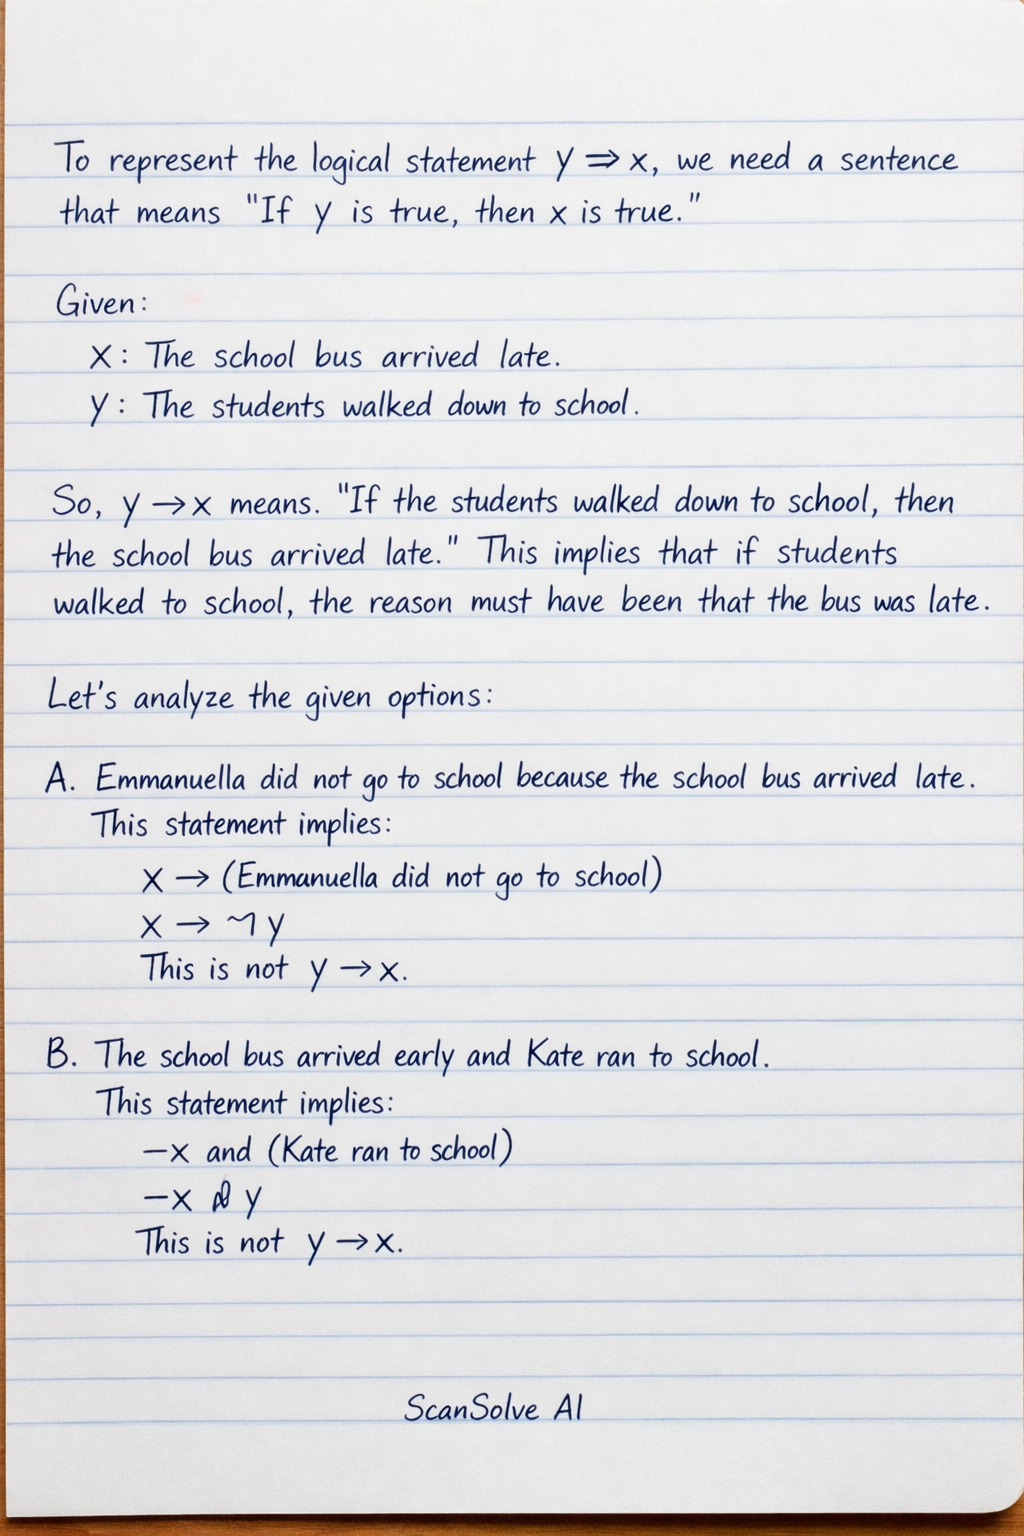 To represent the logical statement y ⇒ x, we need a sentence
that means "If y is true, then x is true."
Given:
x: The school bus arrived late.
y: The students walked down to school.
So, y → x means. "If the students walked down to school, then
the school bus arrived late." This implies that if students
walked to school, the reason must have been that the bus was late.
Let's analyze the given options:
A. Emmanuella did not go to school because the school bus arrived late.
This statement implies:
x → (Emmanuella did not go to school)
x → y
This is not y → x.
B. The school bus arrived early and Kate ran to school.
This statement implies:
—x and (Kate ran to school)
—x y
This is not y → x.
ScanSolve AI